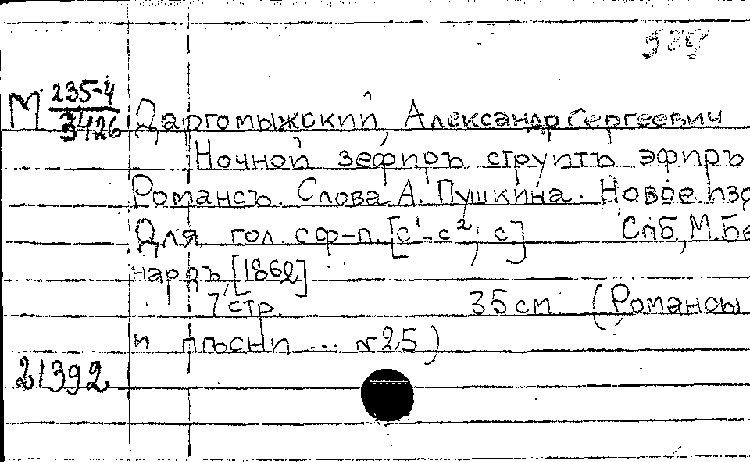 М 235-4
3426 Даргомыжский, Александр Сергеевич
Ночной зефиръ струитъ эфиръ
Романсъ. Слова А. Пушкина. Новое изд
Для гол. с ф-п. [c¹-c²; c] Спб, М. Бе
нардъ, [1862]
7 стр. 35 см (Романсы
и пѣсни ... №25)
21392